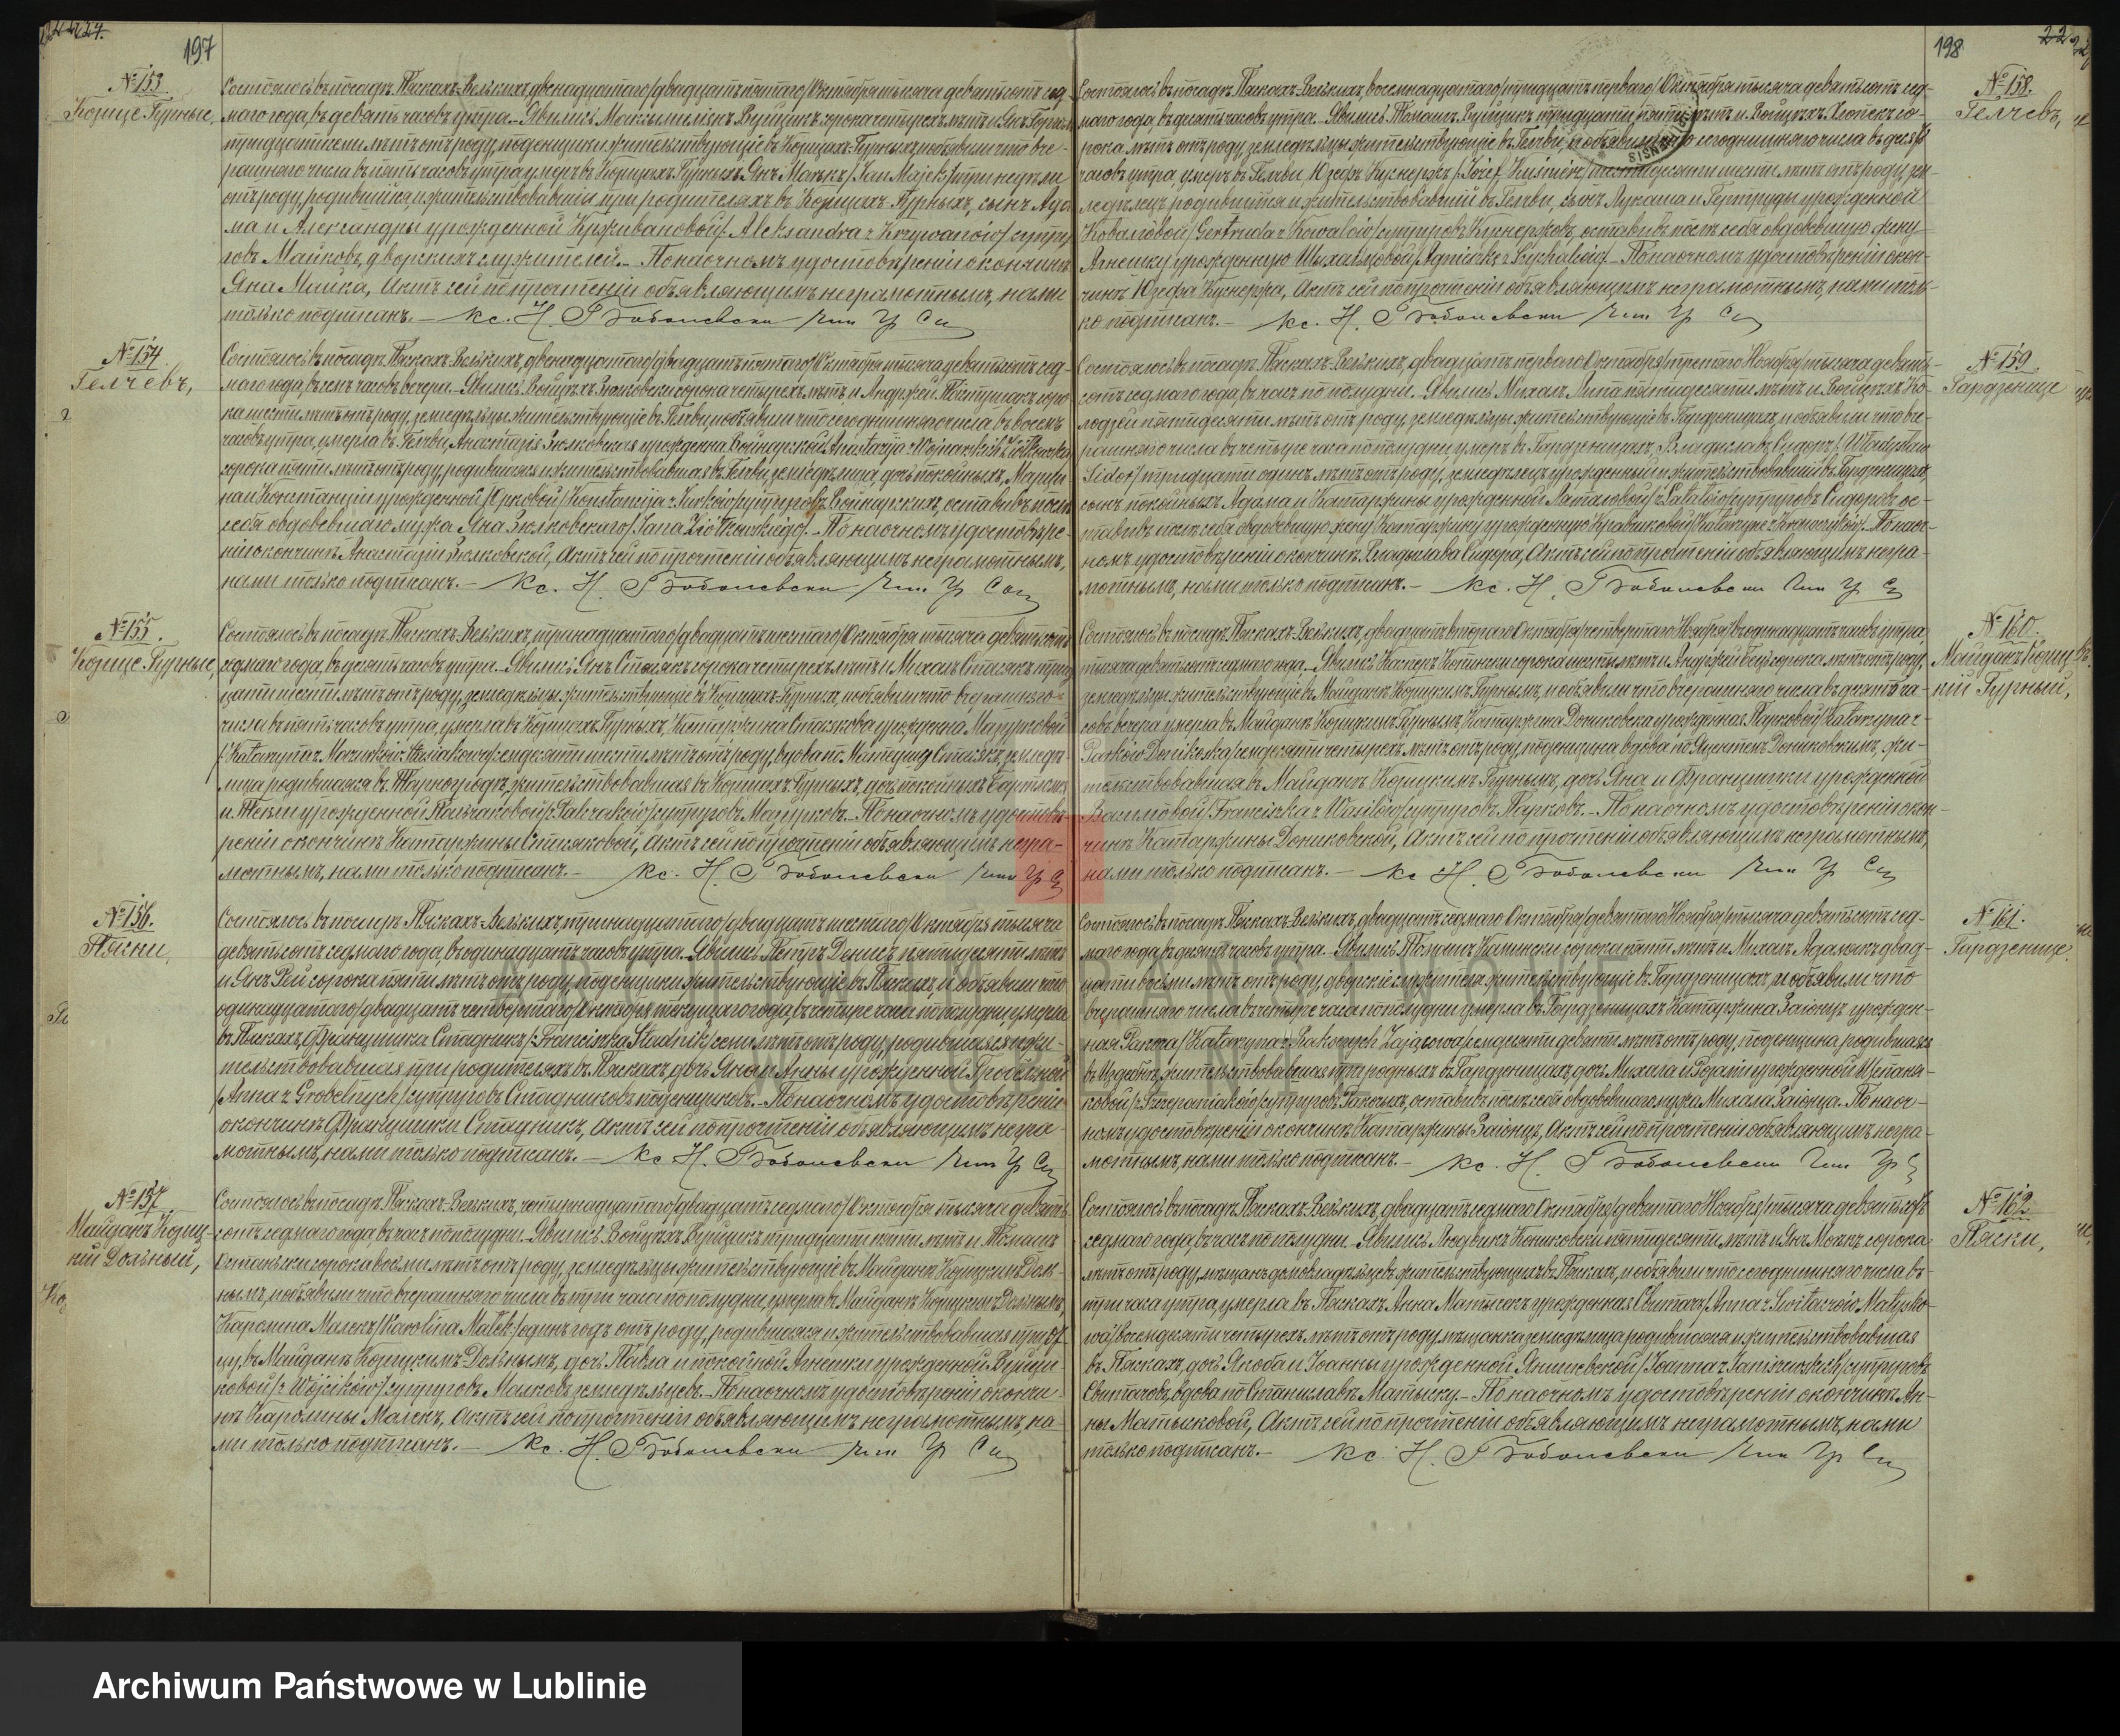 197
№ 153.
Корице Гурные,
Состоялось въ посадѣ Пяскахъ-Велькихъ, двенадцатаго /двадцать пятаго/ Октября тысяча девятьсотъ сед-
маго года, въ девять часовъ утра. Явились Максымиліянъ Вуйцикъ сорока четырехъ лѣтъ и Янъ
тридцати семи лѣтъ отъ роду, поденщики жительствующіе въ Корицахъ-Гурныхъ и объявили что вче-
рашняго числа въ пять часовъ утра умеръ въ Корицахъ Гурныхъ Янъ Маѣкъ /Jan Majek/ три недѣли
отъ роду, родившійся и жительствовавшій при родителяхъ въ Корицахъ Гурныхъ, сынъ Ада-
ма и Александры урожденной Крживановой /Aleksandra z Krzywanów/ супру-
говъ Майковъ, дворскихъ служителей. По наочномъ удостовѣреніи о кончинѣ
Яна Майка, Актъ сей по прочтеніи объявляющимъ неграмотнымъ, нами
только подписанъ. Кс. Н.
№ 154
Гелчевъ,
Состоялось въ посадѣ Пяскахъ-Велькихъ, двенадцатаго /двадцать пятаго/ Октября тысяча девятьсотъ сед-
маго года, въ часовъ вечера. Явились Войцѣхъ сорока четырехъ лѣтъ и Андржей соро-
ка шести лѣтъ отъ роду, земледѣльцы жительствующіе въ Гелчви и объявили что сегодняшняго числа въ восемь
часовъ утра, умерла въ Гелчви, Анастазія Зюлковская урожденна Войнарскихъ /Anastazyja z Wojnarskich Ziółkowska/
сорока пяти лѣтъ отъ роду, родившаяся и жительствовавшая въ Гелчви, земледѣлица, дочь покойныхъ
и Констанціи урожденной Юрковой /Konstancija z Jurków/ супруговъ Войнарскихъ, оставивъ послѣ
себя овдовевшаго мужа Яна Зюлковскаго /Jana Ziółkowskiego/. По наочномъ удостовѣре-
ніи о кончинѣ Анастазіи Зюлковской, Актъ сей по прочтеніи объявляющимъ неграмотнымъ,
нами только подписанъ. Кс. Н.
№ 155.
Корице Гурные,
Состоялось въ посадѣ Пяскахъ-Велькихъ, тринадцатаго /двадцать шестаго/ Октября тысяча девятьсотъ
седмаго года, въ десять часовъ утра. Явились Янъ Стасякъ сорока четырехъ лѣтъ и Михалъ Стасякъ трид-
цати шести лѣтъ отъ роду, земледѣльцы жительствующіе въ Корицахъ-Гурныхъ, и объявили что вчерашняго
числа въ пять часовъ утра, умерла въ Корицахъ Гурныхъ, Катаржина Стасякова урожденна Мазурковой
/Katarzyna z Mazurków Stasiakowa/ семдесяти шести лѣтъ отъ роду, вдова по Матеушу Стасякъ, земледѣ-
лица родившаяся въ жительствовавшая въ Корицахъ Гурныхъ, дочь покойныхъ
и Теклы урожденной супруговъ Мазурковъ. По наочномъ удостовѣ-
реніи о кончинѣ Катаржины Стасяковой, Актъ сей по прочтеніи объявляющимъ негра-
мотнымъ, нами только подписанъ. Кс. Н.
№ 156.
Пяски,
Состоялось въ посадѣ Пяскахъ-Велькихъ, тринадцатаго /двадцать шестаго/ Октября тысяча
девятьсотъ седмаго года, въ одиннадцать часовъ утра. Явились Петръ Денисъ пятидесяти лѣтъ
и Янъ Рей сорока пяти лѣтъ отъ роду, поденщики жительствующіе въ Пяскахъ, и объявили что
одинадцатаго /двадцать четвертаго/ Октября текущаго года, въ четыре часа по полудни, умерла
въ Пяскахъ, Францишка Стадникъ /Franciszka Stadnik/ семи лѣтъ отъ роду, родившаяся и жи-
тельствовавшая при родителяхъ въ Пяскахъ, дочь Яна и Анны урожденной Гробельной
/Anna z Grobelnych/ супруговъ Стадниковъ поденщиковъ. По наочномъ удостовѣреніи
о кончинѣ Францишки Стадникъ, Актъ сей по прочтеніи объявляющимъ негра-
мотнымъ, нами только подписанъ. Кс. Н.
№ 157
Майданъ Кориц-
кій Дольный,
Состоялось въ посадѣ Пяскахъ-Велькихъ, четырнадцатаго /двадцать седмаго/ Октября тысяча девять-
сотъ седмаго года въ часъ по полудни. Явились Войцѣхъ Вуйцикъ тридцати пяти лѣтъ и Томашъ
сорока восьми лѣтъ отъ роду, земледѣльцы жительствующіе въ Майданѣ Корицкимъ Доль-
нымъ, и объявили что вчерашняго числа въ три часа по полудни, умерла въ Майданѣ Корицкимъ Дольнымъ,
Каролина Малекъ /Karolina Malek/ одинъ годъ отъ роду, родившаяся и жительствовавшая при от-
цу, въ Майданѣ Корицкимъ-Дольнымъ, дочь Павла и покойной Агнешки урожденной Вуйци-
ковой /z Wójcików/ супруговъ Малковъ земледѣльцевъ. По наочномъ удостовѣреніи о кончи-
нѣ Каролины Малекъ, Актъ сей по прочтеніи объявляющимъ неграмотнымъ, на-
ми только подписанъ. Кс. Н.
198
№ 158.
Гелчевъ,
Состоялось въ посадѣ Пяскахъ-Велькихъ, восемнадцатаго /тридцать перваго/ Октября тысяча девятьсотъ сед-
маго года, въ десять часовъ утра. Явились Томашъ Вуйцикъ тридцати пяти лѣтъ и Войцѣхъ со-
рока лѣтъ отъ роду, земледѣльцы жительствующіе въ Гелчви, и объявили что сегодняшняго числа въ
часовъ утра, умеръ въ Гелчви, Юзефъ Кусмержъ /Józef Kuśmierz/ шести лѣтъ отъ роду, зем-
ледѣлецъ родившійся и жительствовавшій въ Гелчви, сынъ Лукаша и Гертруды урожденной
Ковалевой /Gertruda z Kowalów/ супруговъ оставивъ послѣ себя овдовевшую жену
Агнешку урожденную По наочномъ удостовѣреніи о кон-
чинѣ Юзефа Актъ сей по прочтеніи объявляющимъ неграмотнымъ, нами толь-
ко подписанъ. Кс. Н.
№ 159.
Гардзенице
Состоялось въ посадѣ Пяскахъ-Велькихъ, двадцать перваго Октября /третьяго Ноября/ тысяча девять-
сотъ седмаго года въ часъ по полудни. Явились Михалъ пятидесяти лѣтъ и Войцѣхъ Ко-
лодзей пятидесяти лѣтъ отъ роду, земледѣльцы жительствующіе въ Гардзеницахъ, и объявили что вче-
рашняго числа въ четыре часа по полудни умеръ въ Гардзеницахъ, Владиславъ Сидоръ /Władysław
Sidor/ тридцати одинъ лѣтъ отъ роду, земледѣлецъ урожденный и жительствовавшій въ Гардзеницахъ,
сынъ покойныхъ Адама и Катаржины урожденной супруговъ Сидоровъ ос-
тавивъ послѣ себя овдовевшую жену Катаржину урожденную По наоч-
номъ удостовѣреніи о кончинѣ Владыслава Сидора, Актъ сей по прочтеніи объявляющимъ негра-
мотнымъ, нами только подписанъ. Кс. Н.
№ 160.
Майданъ Кориц-
кій Гурный,
Состоялось въ посадѣ Пяскахъ-Велькихъ, двадцать втораго Октября /четвертаго Ноября/ въ одинадцать часовъ утра,
тысяча девятьсотъ седмаго года. Явились Каспръ сорока шести лѣтъ и Андржей сорока лѣтъ отъ роду,
земледѣльцы жительствующіе въ Майданѣ Корицкимъ Гурнымъ, и объявили что вчерашняго числа въ девять ча-
совъ вечера умерла въ Майданѣ Корицкимъ Гурнымъ, Катаржина Дониковска урожденная Парковой /Katarzyna z
Parków семдесяти четырехъ лѣтъ отъ роду, поденщица вдова по Дониковскимъ, жи-
тельствовавшая въ Майданѣ Корицкимъ Гурнымъ, дочь Яна и Францишки урожденной
Василовой /Franciszka z Wasilów/ супруговъ Парковъ. По наочномъ удостовѣреніи о кон-
чинѣ Катаржины Дониковской, Актъ сей по прочтеніи объявляющимъ неграмотнымъ,
нами только подписанъ. Кс. Н.
№ 161.
Гардзенице
Состоялось въ посадѣ Пяскахъ-Велькихъ, двадцать седмаго Октября /девятаго Ноября/ тысяча девятьсотъ сед-
маго года въ десять часовъ утра. Явились Томашъ Калински сорока пяти лѣтъ и Михалъ Адамекъ двад-
цати восьми лѣтъ отъ роду, дворскіе служители жительствующіе въ Гардзеницахъ и объявили что
вчерашняго числа въ четыре часа по полудни умерла въ Гардзеницахъ Катаржина Заіонцъ урожден-
ная /Katarzyna z Rakowych Zającowa/ семдесяти девяти лѣтъ отъ роду, поденщица родившаяся
въ жительствовавшая при родныхъ въ Гардзеницахъ, дочь Михала и урожденной
супруговъ оставивъ послѣ себя овдовевшаго мужа Михала Заіонца. По наоч-
номъ удостовѣреніи о кончинѣ Катаржины Заіонцъ, Актъ сей по прочтеніи объявляющимъ негра-
мотнымъ, нами только подписанъ. Кс. Н.
№ 162
Пяски,
Состоялось въ посадѣ Пяскахъ-Велькихъ, двадцать седмаго Октября /девятаго Ноября/ тысяча девятьсотъ
седмаго года, въ часъ по полудни. Явились Людвикъ пятидесяти лѣтъ и Янъ сорока
лѣтъ отъ роду, мѣщане домовладѣльцы жительствующіе въ Пяскахъ, и объявили что сегодняшняго числа въ
три часа утра, умерла въ Пяскахъ Анна Матысекъ урожденная Свитачъ /Anna z Switaczów Matysko-
wa/ восемдесяти четырехъ лѣтъ отъ роду, мѣщанка земледѣлица родившаяся и жительствовавшая
въ Пяскахъ, дочь Якоба и Іоанны урожденной Янишевской /Joanna z Janiszewskich/ супруговъ
Свитачовъ, вдова по Станиславѣ Матыску. По наочномъ удостовѣреніи о кончинѣ Ан-
ны Матысковой, Актъ сей по прочтеніи объявляющимъ неграмотнымъ, нами
только подписанъ. Кс. Н.
ARCHIWUM PAŃSTWOWE
W LUBLINIE
Archiwum Państwowe w Lublinie